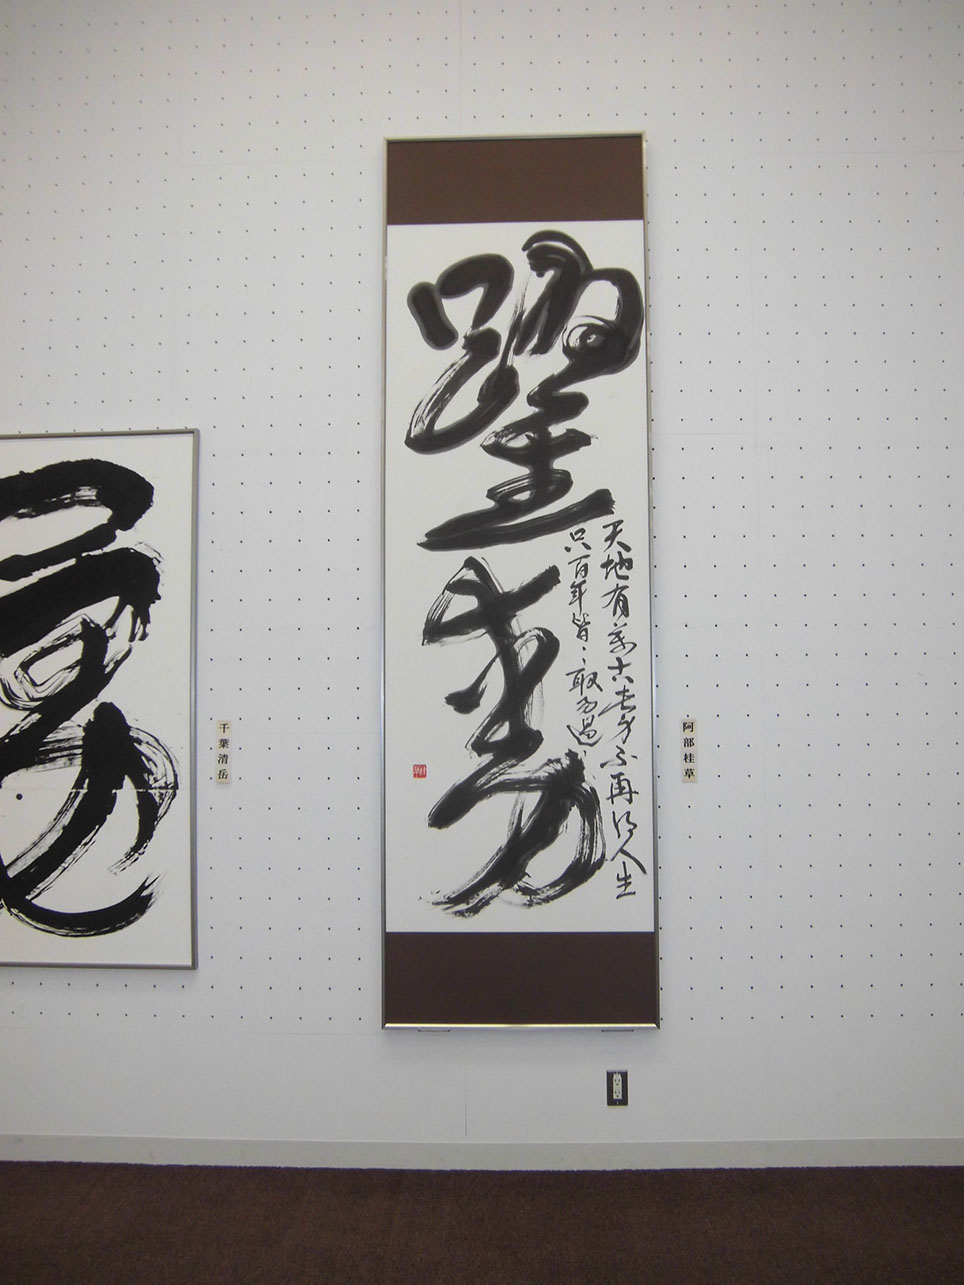 躍動
天地有萬古此身不再得人生
只百年皆、最易過、
阿部桂草
千葉清岳